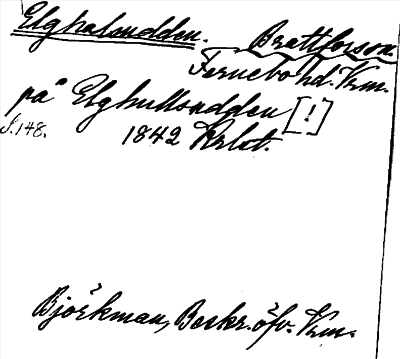 Elghalsudden. Brattforson.
Fernebo hd. Vrm.
på Elghullsudden [!]
S. 148. 1842 Krlst.
Björkman, Beskr. öfv. Vrm.